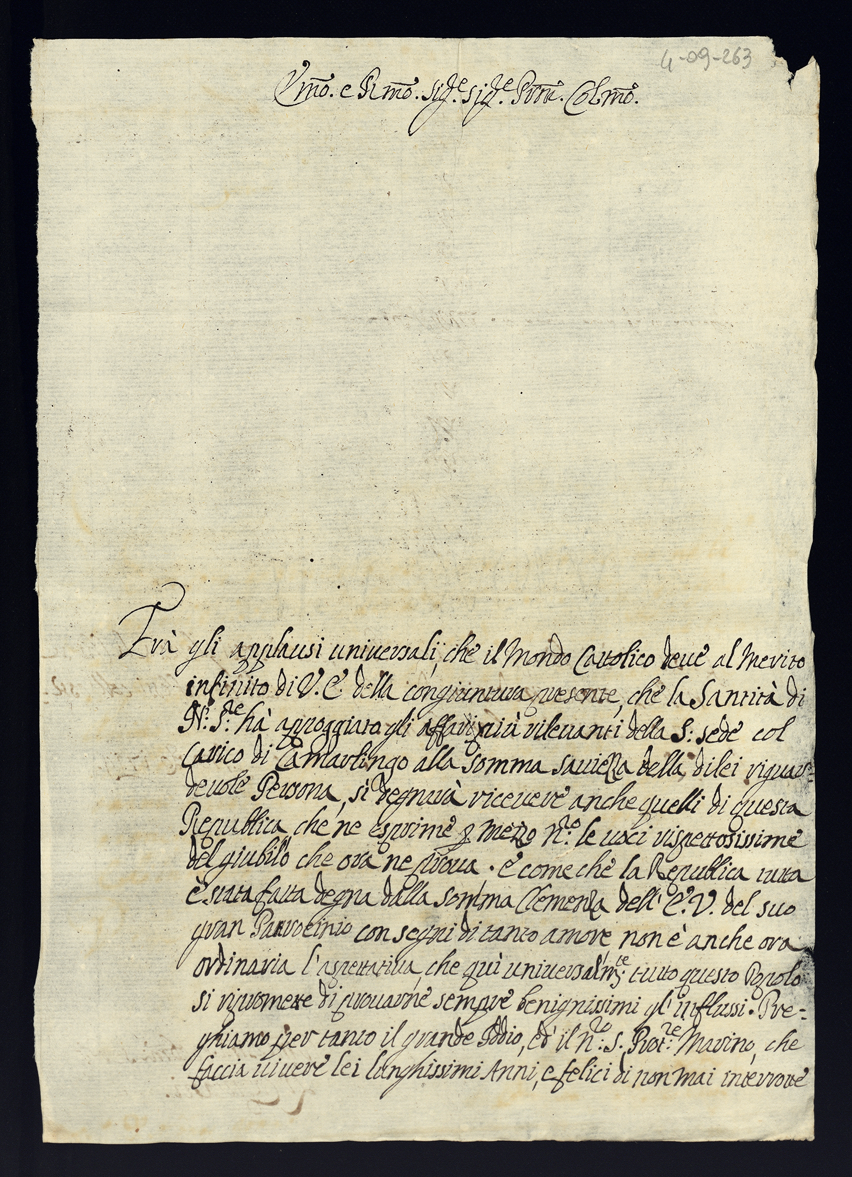 4-09-263
Emo. e Rmo. Sigre. Sigre. Prne. Colmo.
Trà gli applausi universali, che il Mondo Cattolico deve al Merito
infinito di V. E. della congiuntura presente, che la Santità di
N. Sre. hà appoggiato gli affari più rilevanti della S: sede col
carico di Camarlingo alla somma saviezza della dilei riguar-
devole Persona, si degnarà ricevere anche quelli di questa
Republica, che ne esprime p mezo nro. le voci rispettosissime
del giubilo che ora ne prova. E come che la Republica tutta
è stata fatta degna dalla somma Clemenza dell' E. V. del suo
gran Patrocinio con segni di tanto amore non è anche ora
ordinaria l'aspettativa, che quì universalmte. tutto questo Popolo
si ripromete di provarne sempre benignissimi gl'influssi. Pre-
ghiamo per tanto il grande Iddio, ed' il nro. S. Protre. Marino, che
faccia vivere lei longhissimi Anni, e felici di non mai interrote